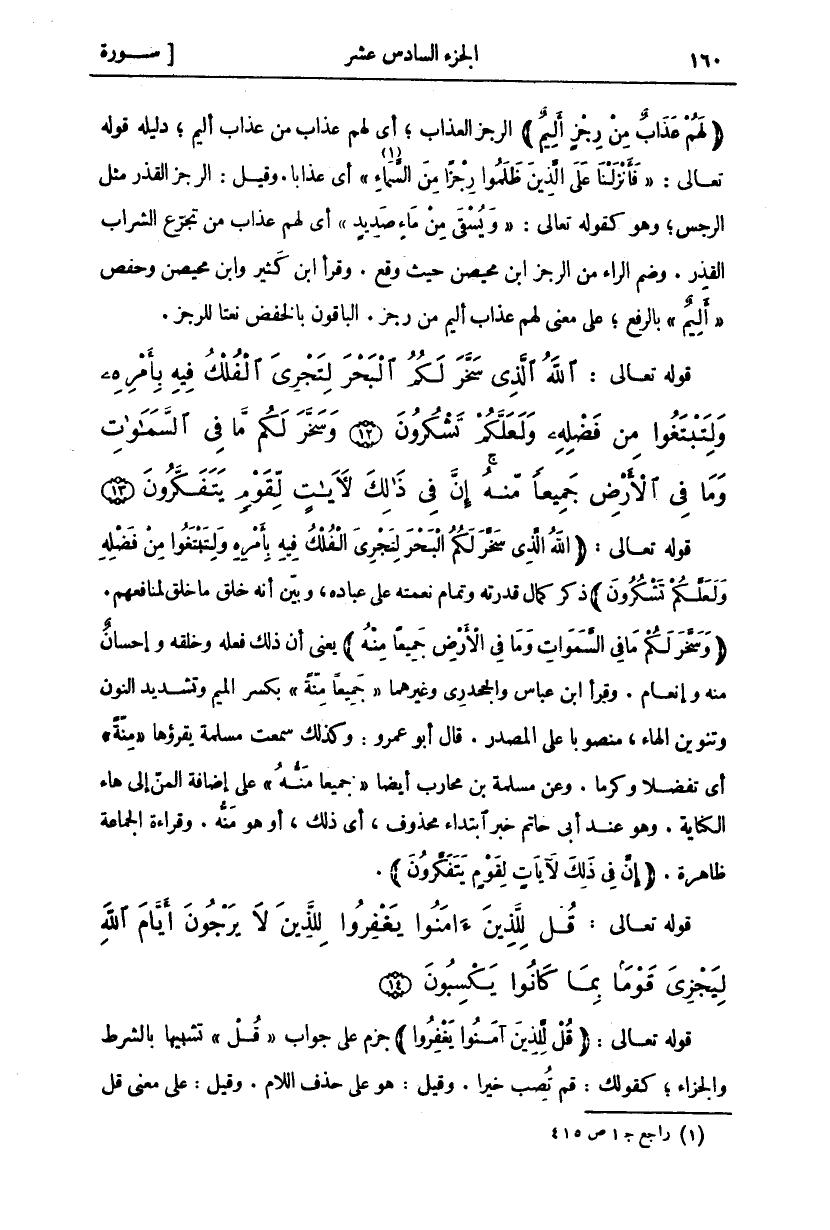 ١٦٠ الجزء السادس عشر [ سورة
﴿ لَهُمْ عَذَابٌ مِنْ رِجْزٍ أَلِيمٌ ﴾ الرجز العذاب ؛ أى لهم عذاب من عذاب أليم ؛ دليله قوله
تعالى : « فَأَنْزَلْنَا عَلَى الَّذِينَ ظَلَمُوا رِجْزًا مِنَ السَّمَاءِ(١) » أى عذابا . وقيل : الرجز القذر مثل
الرجس ؛ وهو كقوله تعالى : « وَيُسْقَى مِنْ مَاءٍ صَدِيدٍ » أى لهم عذاب من تجرّع الشراب
القذر . وضم الراء من الرجز ابن محيصن حيث وقع . وقرأ ابن كثير وابن محيصن وحفص
« أَلِيمٌ » بالرفع ؛ على معنى لهم عذاب أليم من رجز . الباقون بالخفض نعتا للرجز .
قوله تعالى : ٱللَّهُ ٱلَّذِى سَخَّرَ لَكُمُ ٱلْبَحْرَ لِتَجْرِىَ ٱلْفُلْكُ فِيهِ بِأَمْرِهِۦ
وَلِتَبْتَغُوا مِن فَضْلِهِۦ وَلَعَلَّكُمْ تَشْكُرُونَ ﴿١٢﴾ وَسَخَّرَ لَكُم مَّا فِى ٱلسَّمَٰوَٰتِ
وَمَا فِى ٱلْأَرْضِ جَمِيعًا مِّنْهُ ۚ إِنَّ فِى ذَٰلِكَ لَأَيَٰتٍ لِّقَوْمٍ يَتَفَكَّرُونَ ﴿١٣﴾
قوله تعالى : ﴿ اللهُ الَّذِى سَخَّرَ لَكُمُ الْبَحْرَ لِتَجْرِىَ الْفُلْكُ فِيهِ بِأَمْرِهِ وَلِتَبْتَغُوا مِنْ فَضْلِهِ
وَلَعَلَّكُمْ تَشْكُرُونَ ﴾ ذكر كمال قدرته وتمام نعمته على عباده ، وبيّن أنه خلق ما خلق لمنافعهم .
﴿ وَسَخَّرَ لَكُمْ مَا فِى السَّمَوَاتِ وَمَا فِى الْأَرْضِ جَمِيعًا مِنْهُ ﴾ يعنى أن ذلك فعله وخلقه وإحسانٌ
منه وإنعام . وقرأ ابن عباس والجحدرى وغيرهما « جَمِيعًا مِنَّةً » بكسر الميم وتشديد النون
وتنوين الهاء ، منصوبا على المصدر . قال أبو عمرو : وكذلك سمعت مسلمة يقرؤها « مِنَّةً »
أى تفضلا وكرما . وعن مسلمة بن محارب أيضا « جميعا مَنُّهُ » على إضافة المنّ إلى هاء
الكناية . وهو عند أبى حاتم خبر ٱبتداء محذوف ، أى ذلك ، أو هو مَنُّه . وقراءة الجماعة
ظاهرة . ﴿ إِنَّ فِى ذَلِكَ لَآيَاتٍ لِقَوْمٍ يَتَفَكَّرُونَ ﴾ .
قوله تعالى : قُل لِّلَّذِينَ ءَامَنُوا يَغْفِرُوا لِلَّذِينَ لَا يَرْجُونَ أَيَّامَ ٱللَّهِ
لِيَجْزِىَ قَوْمًا بِمَا كَانُوا يَكْسِبُونَ ﴿١٤﴾
قوله تعالى : ﴿ قُلْ لِلَّذِينَ آمَنُوا يَغْفِرُوا ﴾ جزم على جواب « قُلْ » تشبيها بالشرط
والجزاء ؛ كقولك : قم تُصِب خيرا . وقيل : هو على حذف اللام . وقيل : على معنى قل
(١) راجع ج ١ ص ٤١٥